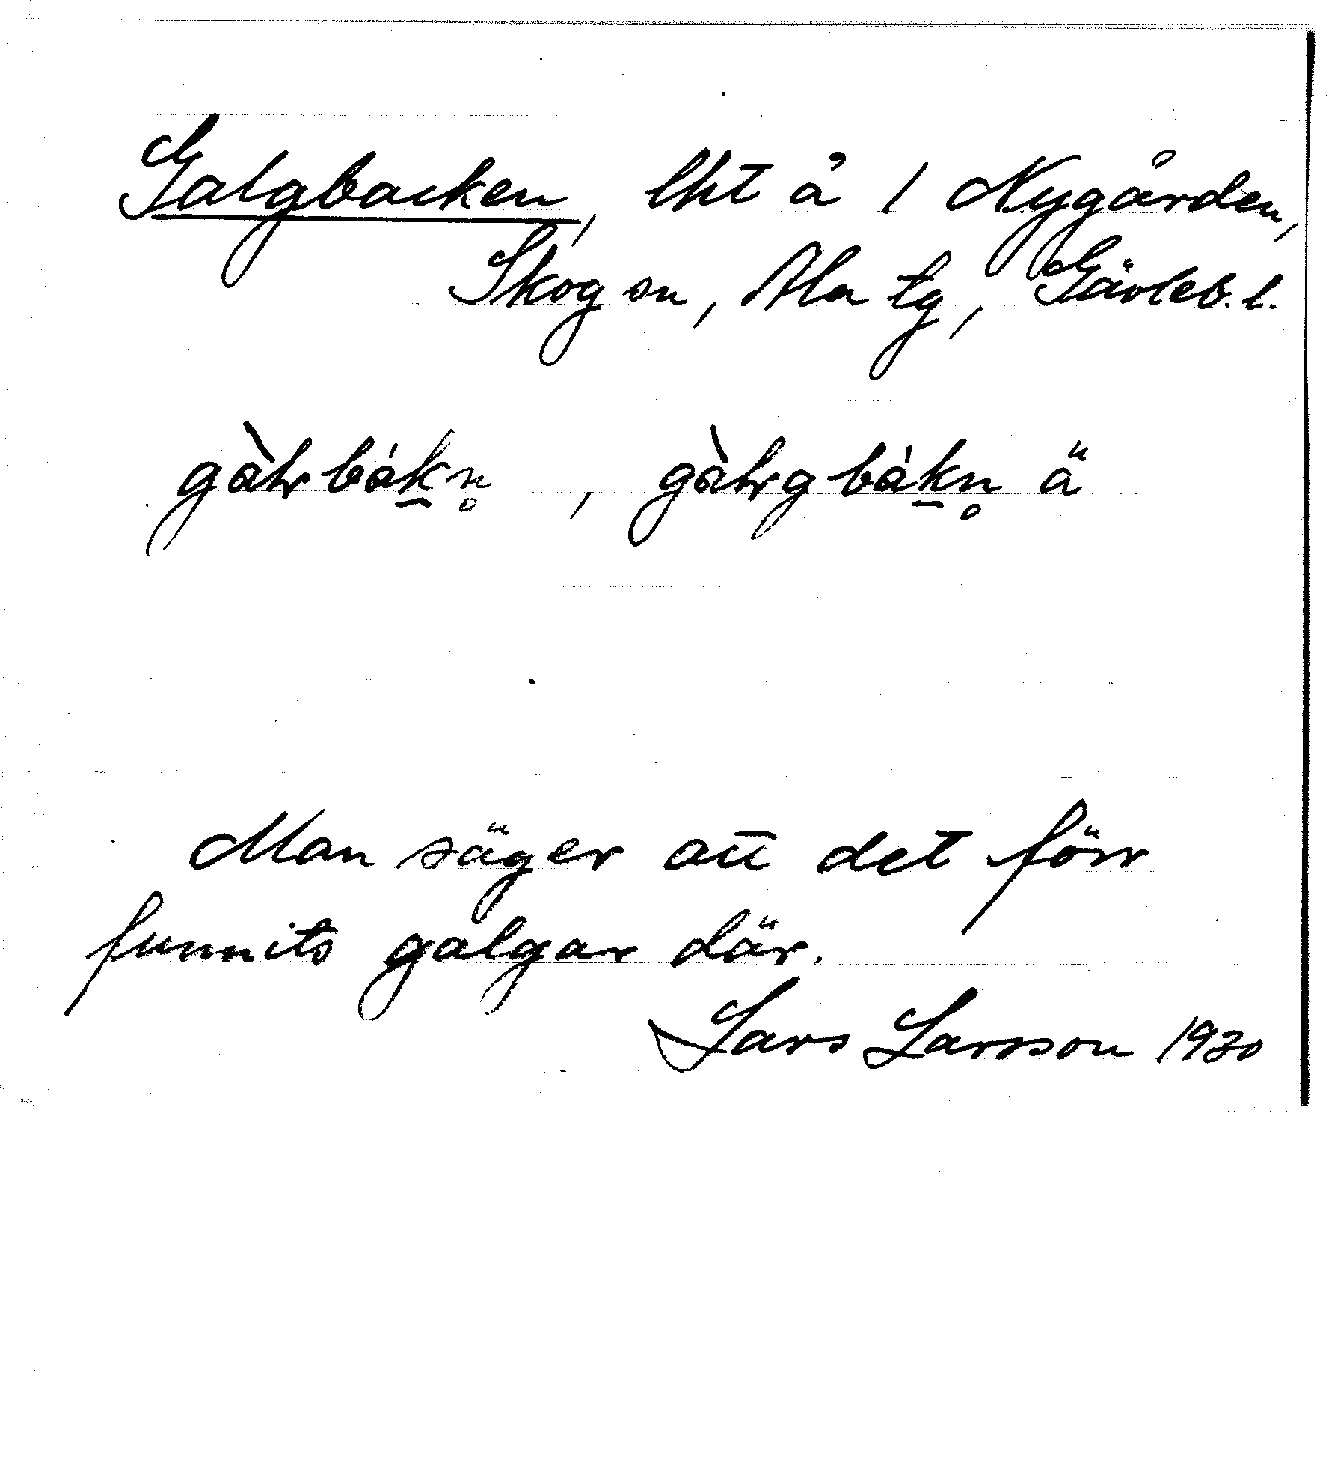 Galgbacken, lht å 1 Nygården,
Skog sn, Ala tg, Gävleb. l.
gàlrbákn̥, gàlrgbákn̥ ä
Man säger att det förr
funnits galgar där.
Lars Larsson 1930